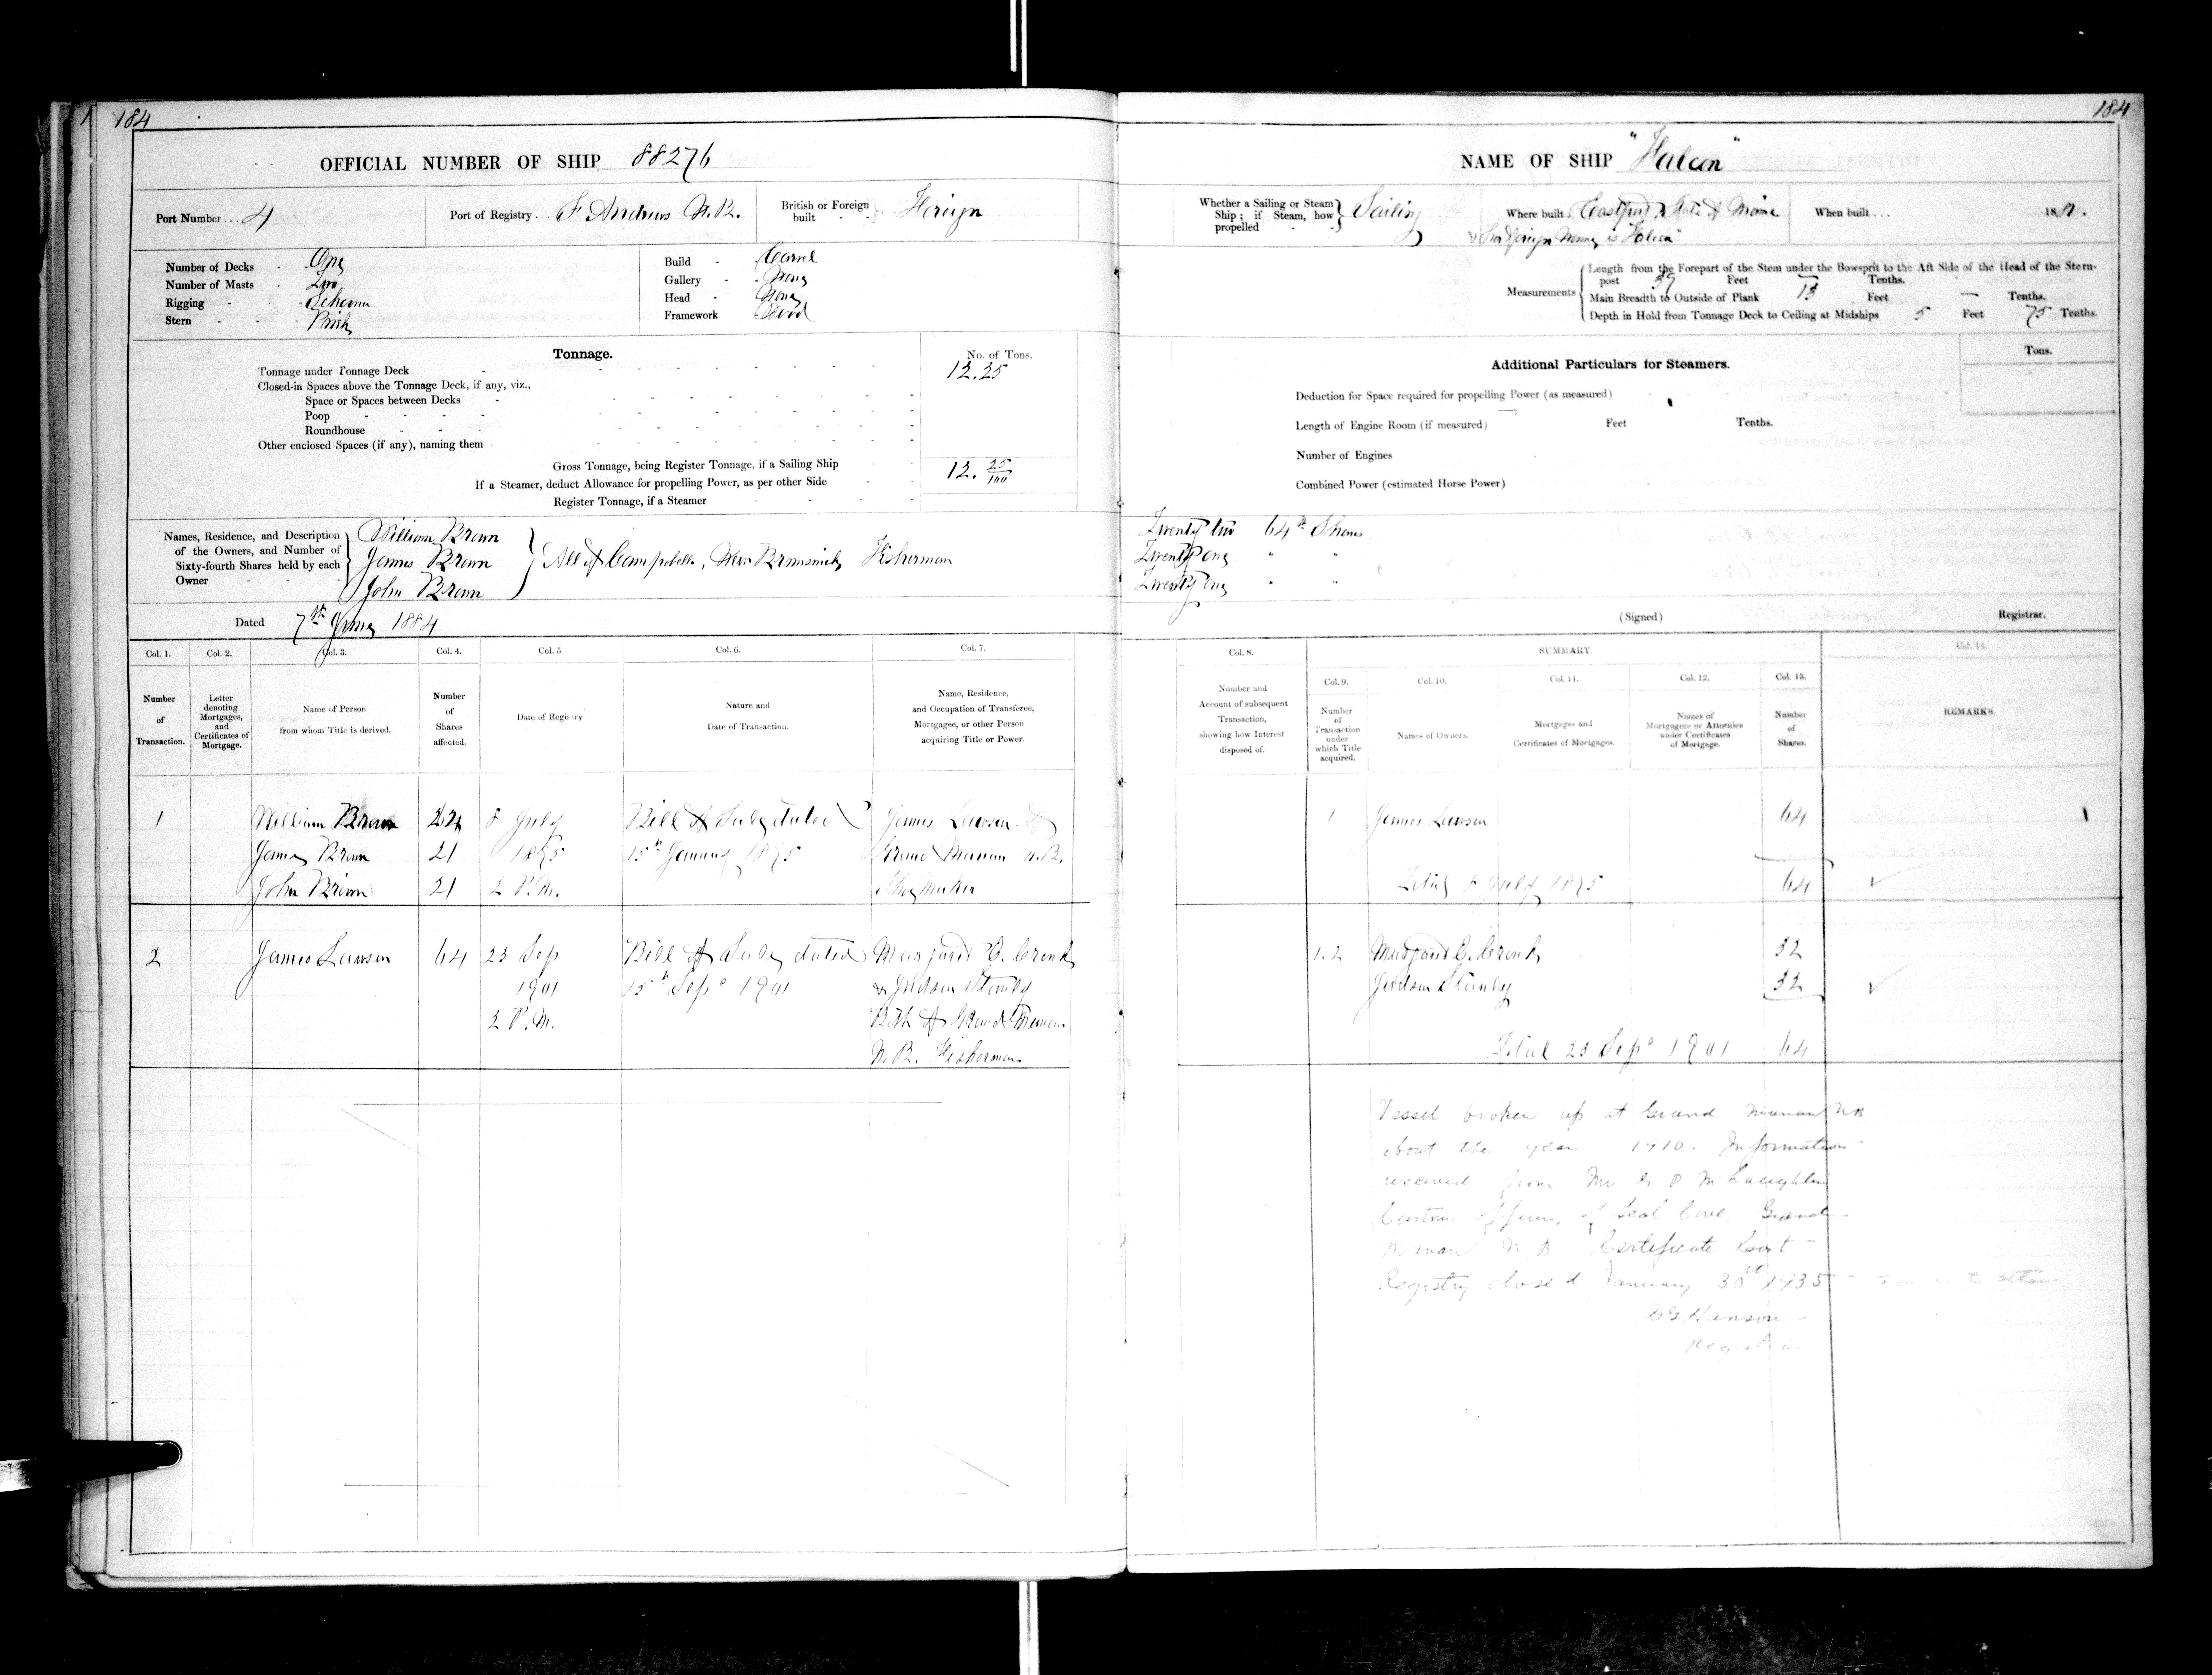 184
OFFICIAL NUMBER OF SHIP 88276
Port Number... 4
Port of Registry... St Andrews N.B.
British or Foreign built Foreign
Number of Decks - One
Number of Masts - Two
Rigging - Schooner
Stern - Pink
Build - Carvel
Gallery - None
Head - None
Framework Wood
Tonnage.
No. of Tons.
Tonnage under Tonnage Deck 12.25
Closed-in Spaces above the Tonnage Deck, if any, viz.,
Space or Spaces between Decks
Poop
Roundhouse
Other enclosed Spaces (if any), naming them
Gross Tonnage, being Register Tonnage, if a Sailing Ship 12. 25/100
If a Steamer, deduct Allowance for propelling Power, as per other Side
Register Tonnage, if a Steamer
Names, Residence, and Description of the Owners, and Number of Sixty-fourth Shares held by each Owner
William Brown
James Brown
John Brown
All of Campobello, New Brunswick, Fisherman
Dated 7th June 1884
Col. 1. Col. 2. Col. 3. Col. 4. Col. 5 Col. 6. Col. 7.
Number of Transaction.
Letter denoting Mortgages, and Certificates of Mortgage.
Name of Person from whom Title is derived.
Number of Shares affected.
Date of Registry.
Nature and Date of Transaction.
Name, Residence, and Occupation of Transferee, Mortgagee, or other Person acquiring Title or Power.
1 William Brown 22 8 July Bill of Sale dated James Lawson of
James Brown 21 1895 15th January 1895 Grand Manan N.B.
John Brown 21 2 P.M. Shoemaker
2 James Lawson 64 23 Sep Bill of Sale dated Margaret C. Cronk
1901 15th Sep 1901 & Judson Stanley
2 P.M. Both of Grand Manan
N.B. Fisherman
184
NAME OF SHIP "Falcon"
Whether a Sailing or Steam Ship; if Steam, how propelled Sailing
Where built Eastport, State of Maine
When built... 188
Foreign Name is "
Measurements
Length from the Forepart of the Stem under the Bowsprit to the Aft Side of the Head of the Stern-
post 37 Feet — Tenths.
Main Breadth to Outside of Plank 13 Feet — Tenths.
Depth in Hold from Tonnage Deck to Ceiling at Midships 5 Feet 75 Tenths.
Additional Particulars for Steamers.
Tons.
Deduction for Space required for propelling Power (as measured)
Length of Engine Room (if measured) Feet Tenths.
Number of Engines
Combined Power (estimated Horse Power)
Twenty two 64th Shares
Twenty one " "
Twenty one " "
(Signed) Registrar.
Col. 8. SUMMARY. Col. 14.
Col. 9. Col. 10. Col. 11. Col. 12. Col. 13.
Number and Account of subsequent Transaction, showing how Interest disposed of.
Number of Transaction under which Title acquired.
Names of Owners.
Mortgages and Certificates of Mortgages.
Names of Mortgagees or Attornies under Certificates of Mortgage.
Number of Shares.
REMARKS.
1 James Lawson 64
Total 8 July 1895 64
1.2 Margaret C. Cronk 32
Judson Stanley 32
Total 23 Sep 1901 64
Vessel broken up at Grand Manan NB
about the year 1910. Information
received from Mr G P McLaughlin
Customs officer, of Seal Cove, Grand
Manan N B Certificate Lost
Registry closed January 30th 1935
Hanson
Registrar